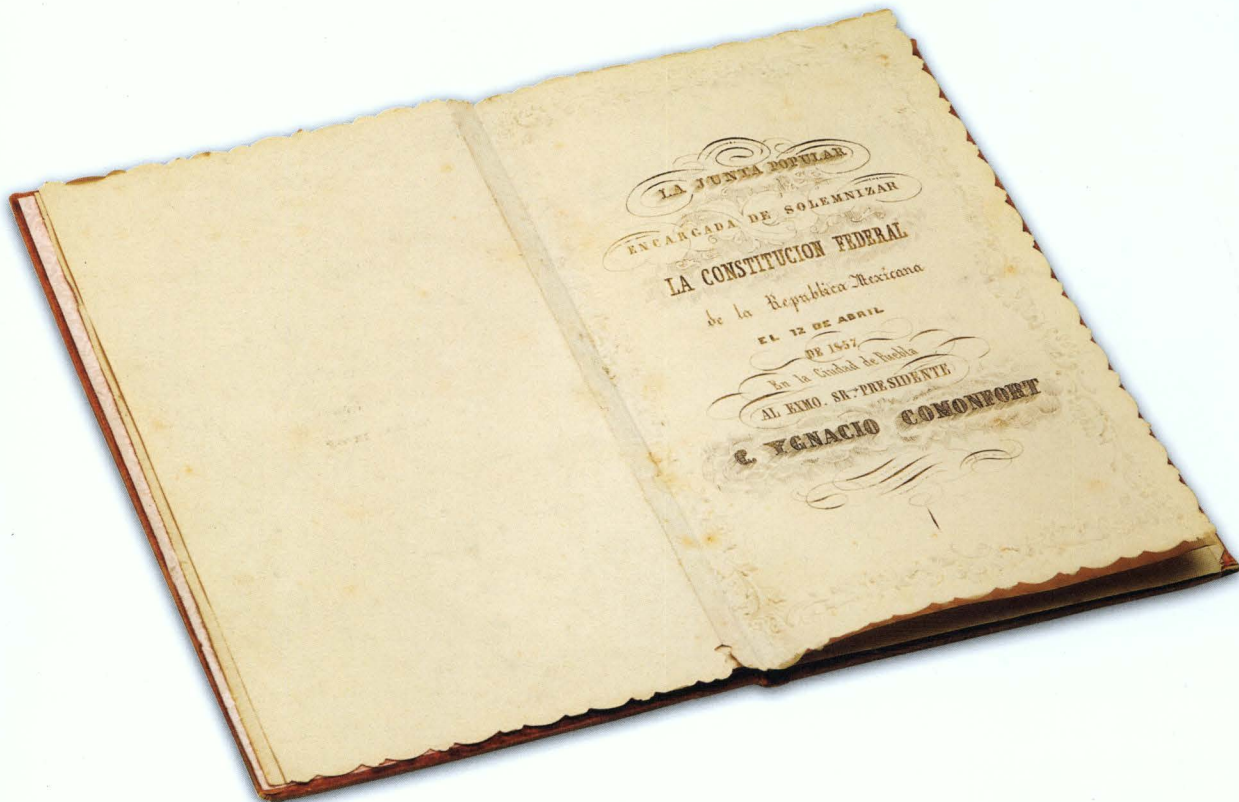 LA JUNTA POPULAR
ENCARGADA DE SOLEMNIZAR
LA CONSTITUCION FEDERAL
de la Republica Mexicana
EL 12 DE ABRIL
DE 1857
En la Ciudad de Puebla
AL EXMO. SR. PRESIDENTE
C. YGNACIO COMONFORT